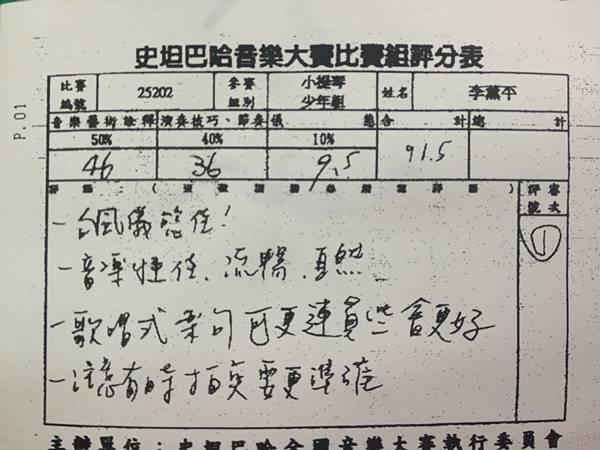 P.01
史坦巴哈音樂大賽比賽組評分表
比賽編號 25202 參賽組別 小提琴少年組 姓名 李薰平
音樂藝術詮釋 演奏技巧、節奏 儀態 合計 總計
50% 40% 10%
46 36 9.5 91.5
評審號次
①
一台風儀態佳!
一音準佳、流暢、自然
一歌唱式樂句可更連貫些會更好
一注意有時拍奏要更準確
主辦單位:史坦巴哈全國音樂大賽執行委員會